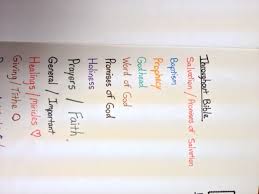 Throughout Bible
Salvation / Promises of Salvation
Baptism
Prophecy
Godhead
Word of God
Promises of God
Holiness
Prayers / Faith
General / Important
Healings / Miracles ♡
Giving / Tithe O